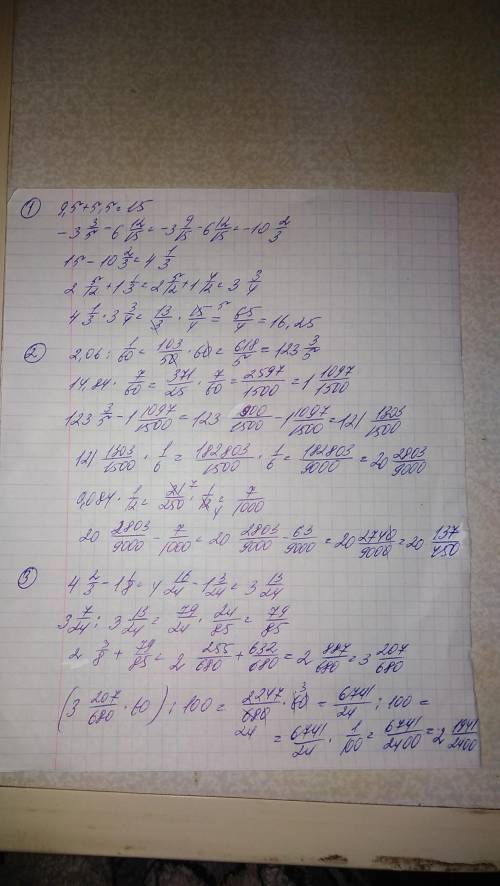 ① 9,5+5,5=15
-3 3/5 - 6 12/15 = -3 9/15 - 6 12/15 = -10 2/3
15 - 10 2/3 = 4 1/3
2 5/12 + 1 1/3 = 2 5/12 + 1 4/12 = 3 3/4
4 1/3 · 3 3/4 = 13/3 · 15/4 = 5 65/4 = 16,25
② 2,06 : 1/60 = 103/50 · 60 = 618/5 = 123 3/5
14,84 · 7/60 = 371/25 · 7/60 = 2597/1500 = 1 1097/1500
123 3/5 - 1 1097/1500 = 123 900/1500 - 1 1097/1500 = 121 1303/1500
121 1303/1500 · 1/6 = 182803/1500 · 1/6 = 182803/9000 = 20 2803/9000
0,084 · 1/12 = 21/250 7 · 1/12 4 = 7/1000
20 2803/9000 - 7/1000 = 20 2803/9000 - 63/9000 = 20 2740/9000 = 20 137/450
③ 4 2/3 - 1 1/8 = 4 16/24 - 1 3/24 = 3 13/24
3 7/24 : 3 13/24 = 79/24 · 24/85 = 79/85
2 3/8 + 79/85 = 2 255/680 + 632/680 = 2 887/680 = 3 207/680
(3 207/680 · 60) : 100 = 2247/680 · 60 3 = 6741/24 : 100 =
24 = 6741/24 · 1/100 = 6741/2400 = 2 1941/2400